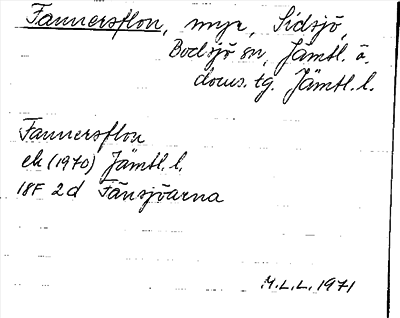 Fannersflon, myr, Sidsjö,
Bodsjö sn, Jämtl. ö.
docus. tg. Jämtl. l.
Fannersflon
ek (1970) Jämtl. l.
18F 2d Fånsjöarna
M.L.L. 1971